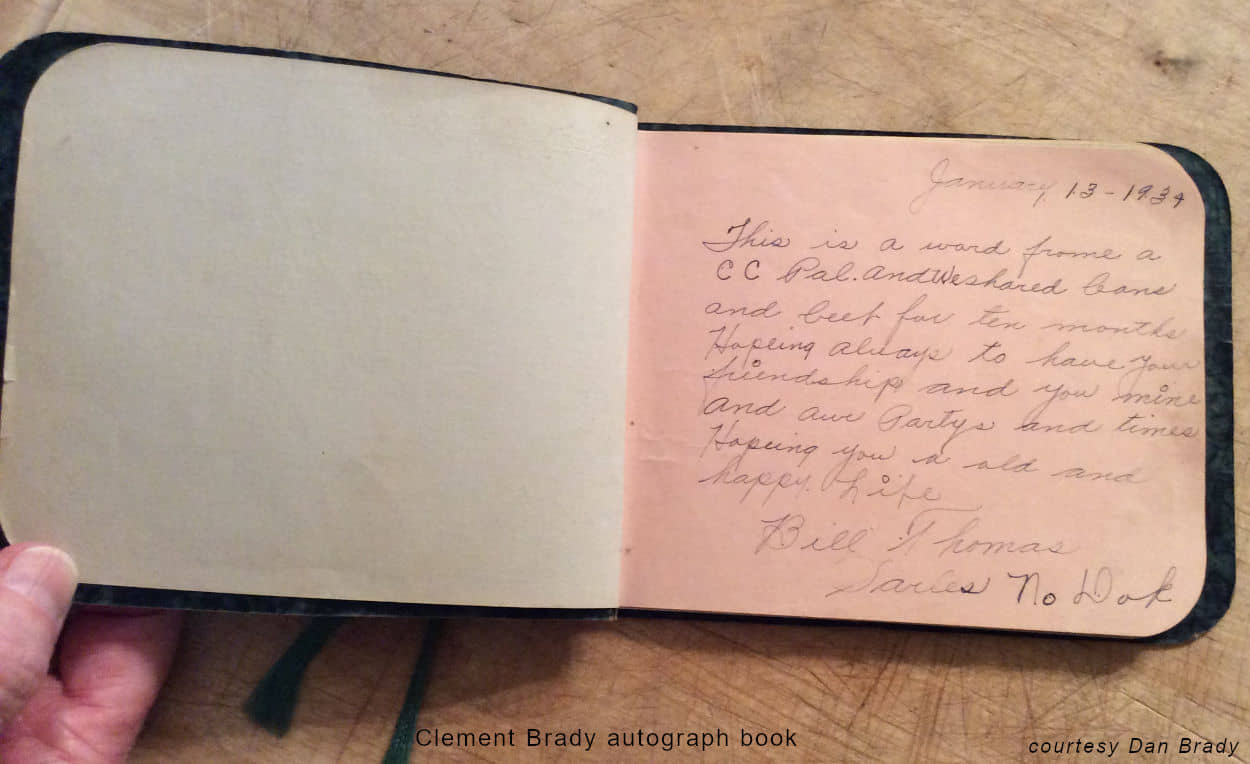 January 13-1934
This is a word frome a
CC Pal. and We shared beans
and beef for ten months
Hopeing always to have your
friendship and you mine
and awr Partys and times
Hopeing you a old and
happy. Life
Bill Thomas
Sarles No Dak
Clement Brady autograph book
courtesy Dan Brady